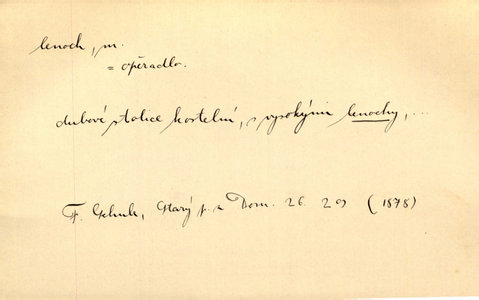 lenoch, m.
= opěradlo.
dubové stolice kostelní, s vysokými lenochy, ...
F. Schulz, Starý p. z Dom. 26. 209 (1878)